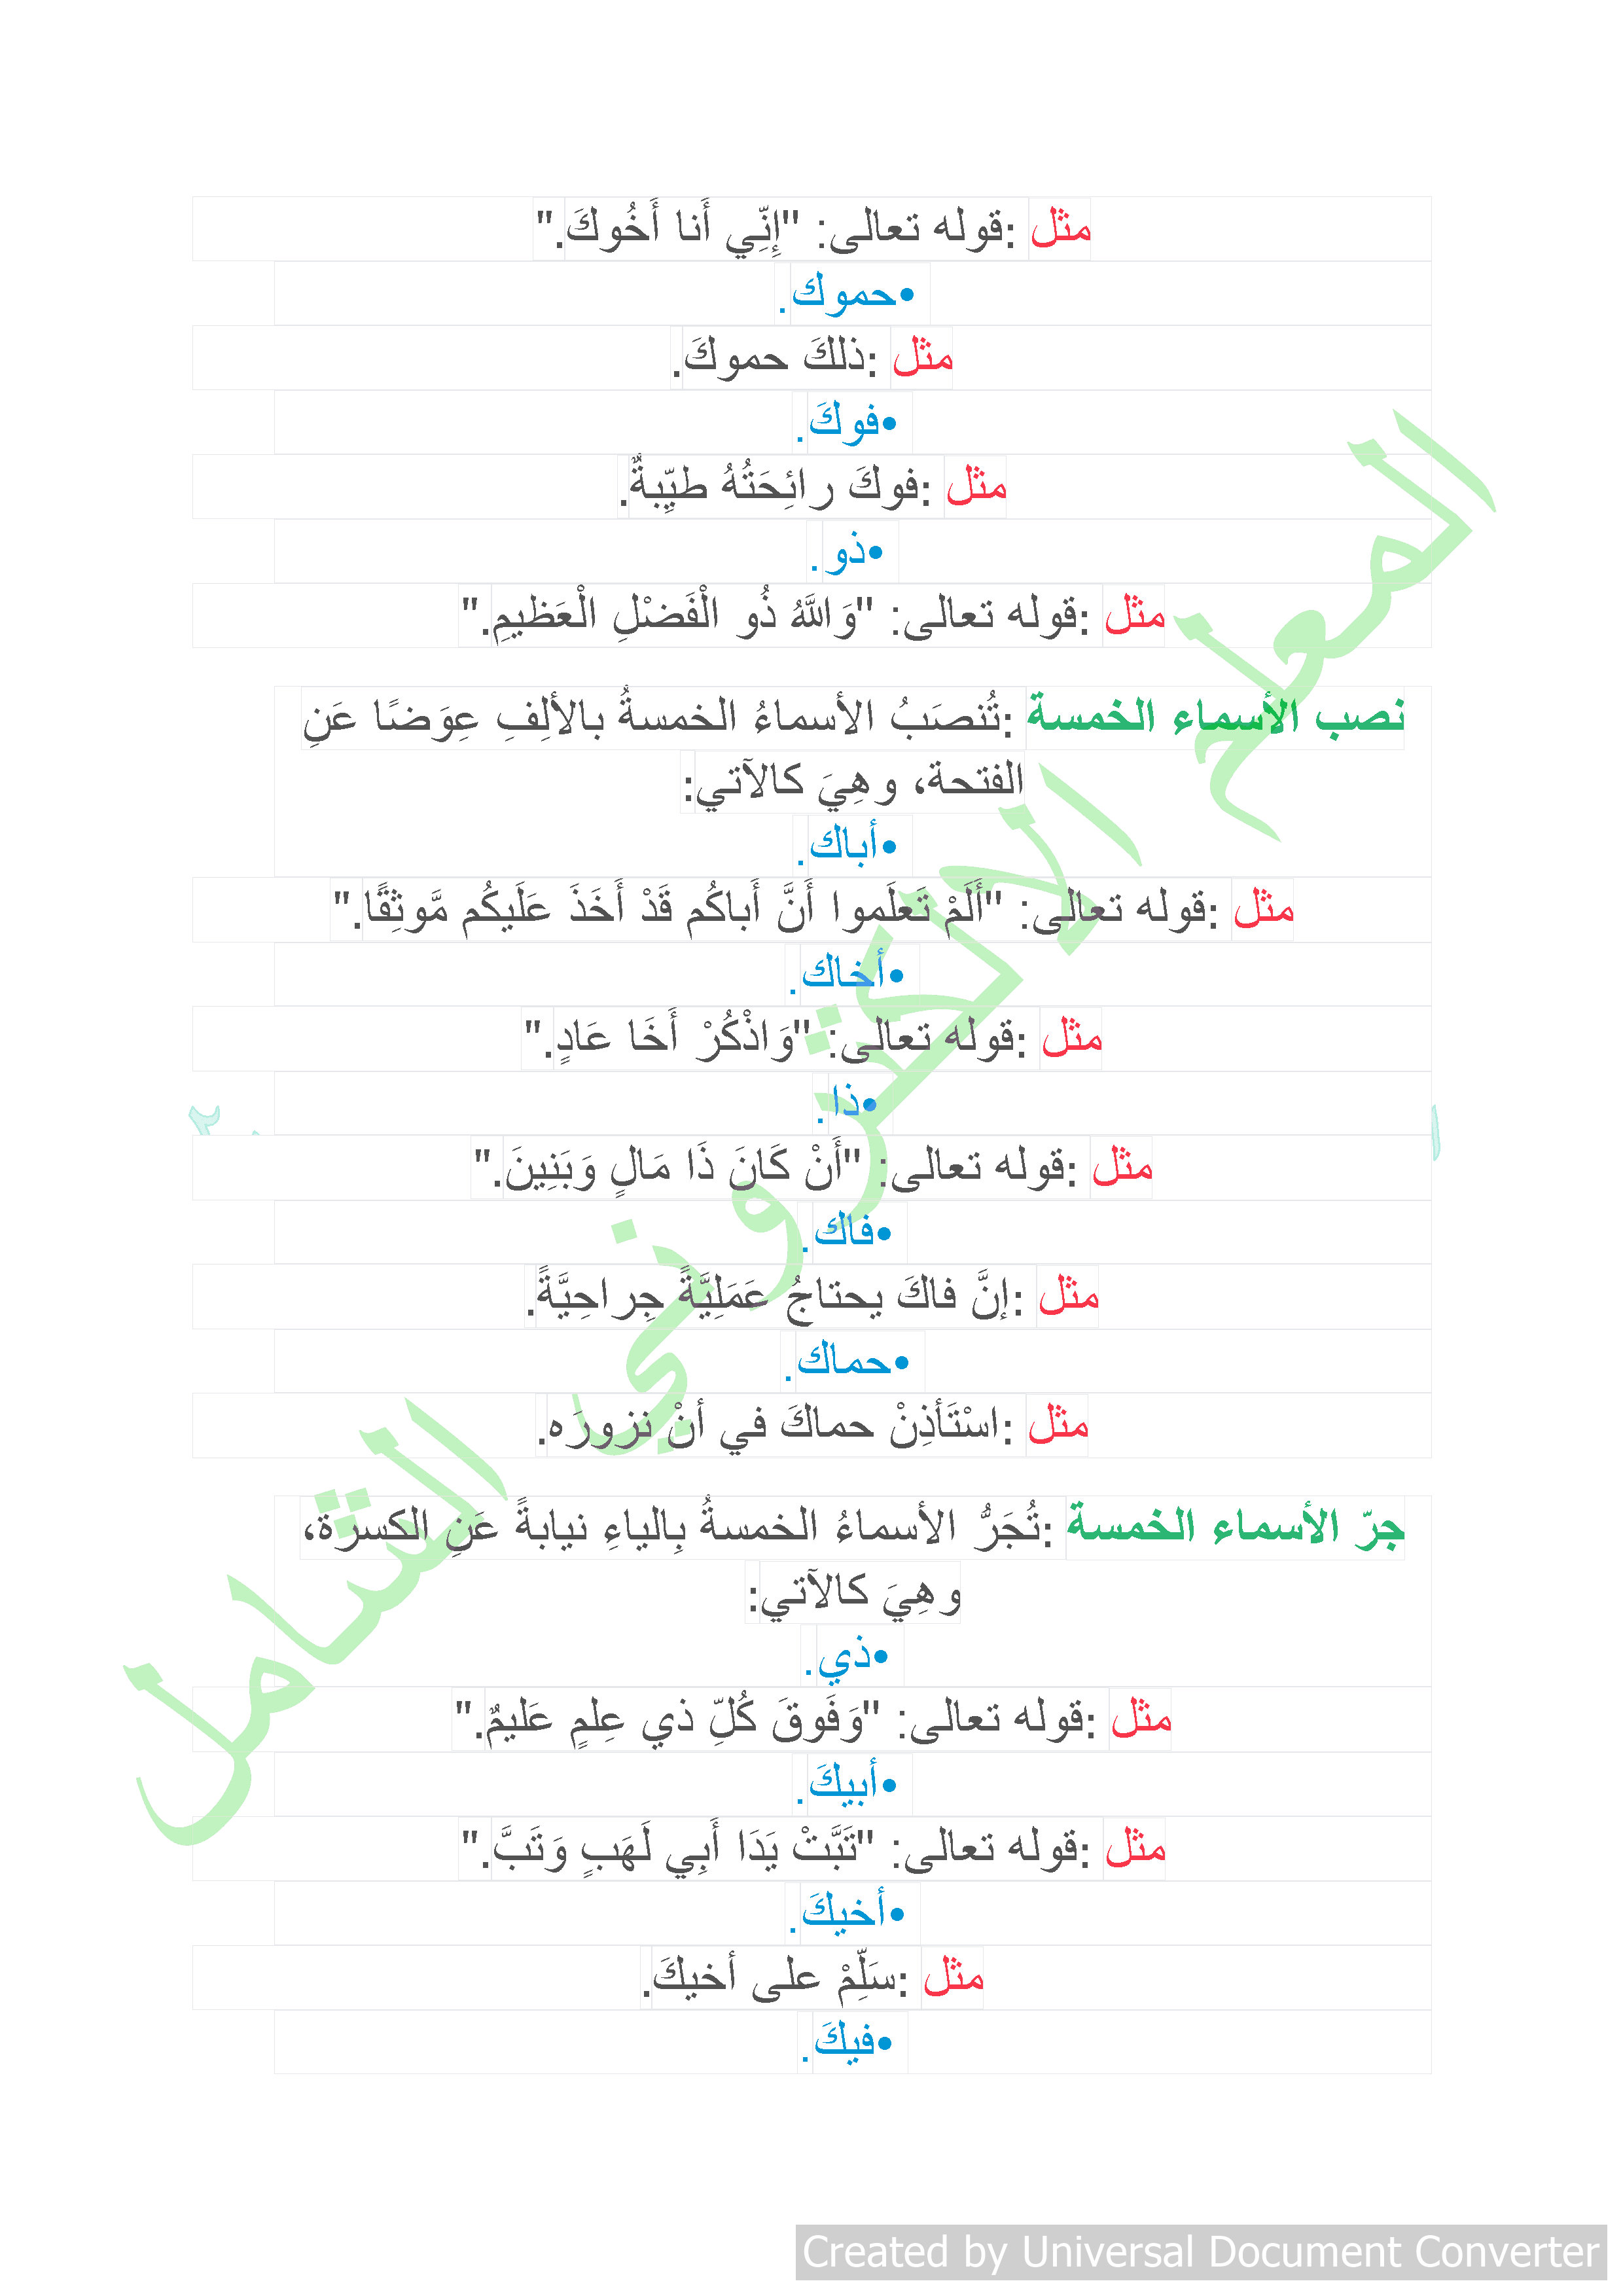 مثل :قوله تعالى: "إِنِّي أَنا أَخُوكَ."
•حموك.
مثل :ذلكَ حموكَ.
•فوكَ.
مثل :فوكَ رائِحَتُهُ طيِّبةٌ.
•ذو.
مثل :قوله تعالى: "وَاللَّهُ ذُو الْفَضْلِ الْعَظيمِ."
نصب الأسماء الخمسة :تُنصَبُ الأسماءُ الخمسةُ بالألِفِ عِوَضًا عَنِ
الفتحة، وهِيَ كالآتي:
•أباك.
مثل :قوله تعالى: "أَلَمْ تَعلَموا أَنَّ أَباكُم قَدْ أَخَذَ عَلَيكُم مَّوثِقًا."
•أخاك.
مثل :قوله تعالى: "وَاذْكُرْ أَخَا عَادٍ."
•ذا.
مثل :قوله تعالى: "أَنْ كَانَ ذَا مَالٍ وَبَنِينَ."
•فاك.
مثل :إنَّ فاكَ يحتاجُ عَمَلِيَّةً جِراحِيَّةً.
•حماك.
مثل :اسْتَأذِنْ حماكَ في أنْ نزورَه.
جرّ الأسماء الخمسة :تُجَرُّ الأسماءُ الخمسةُ بِالياءِ نيابةً عَنِ الكسرة،
وهِيَ كالآتي:
•ذي.
مثل :قوله تعالى: "وَفَوقَ كُلِّ ذي عِلمٍ عَليمٌ."
•أبيكَ.
مثل :قوله تعالى: "تَبَّتْ يَدَا أَبِي لَهَبٍ وَتَبَّ."
•أخيكَ.
مثل :سَلِّمْ على أخيكَ.
•فيكَ.
المعلم الالكتروني الشامل
Created by Universal Document Converter